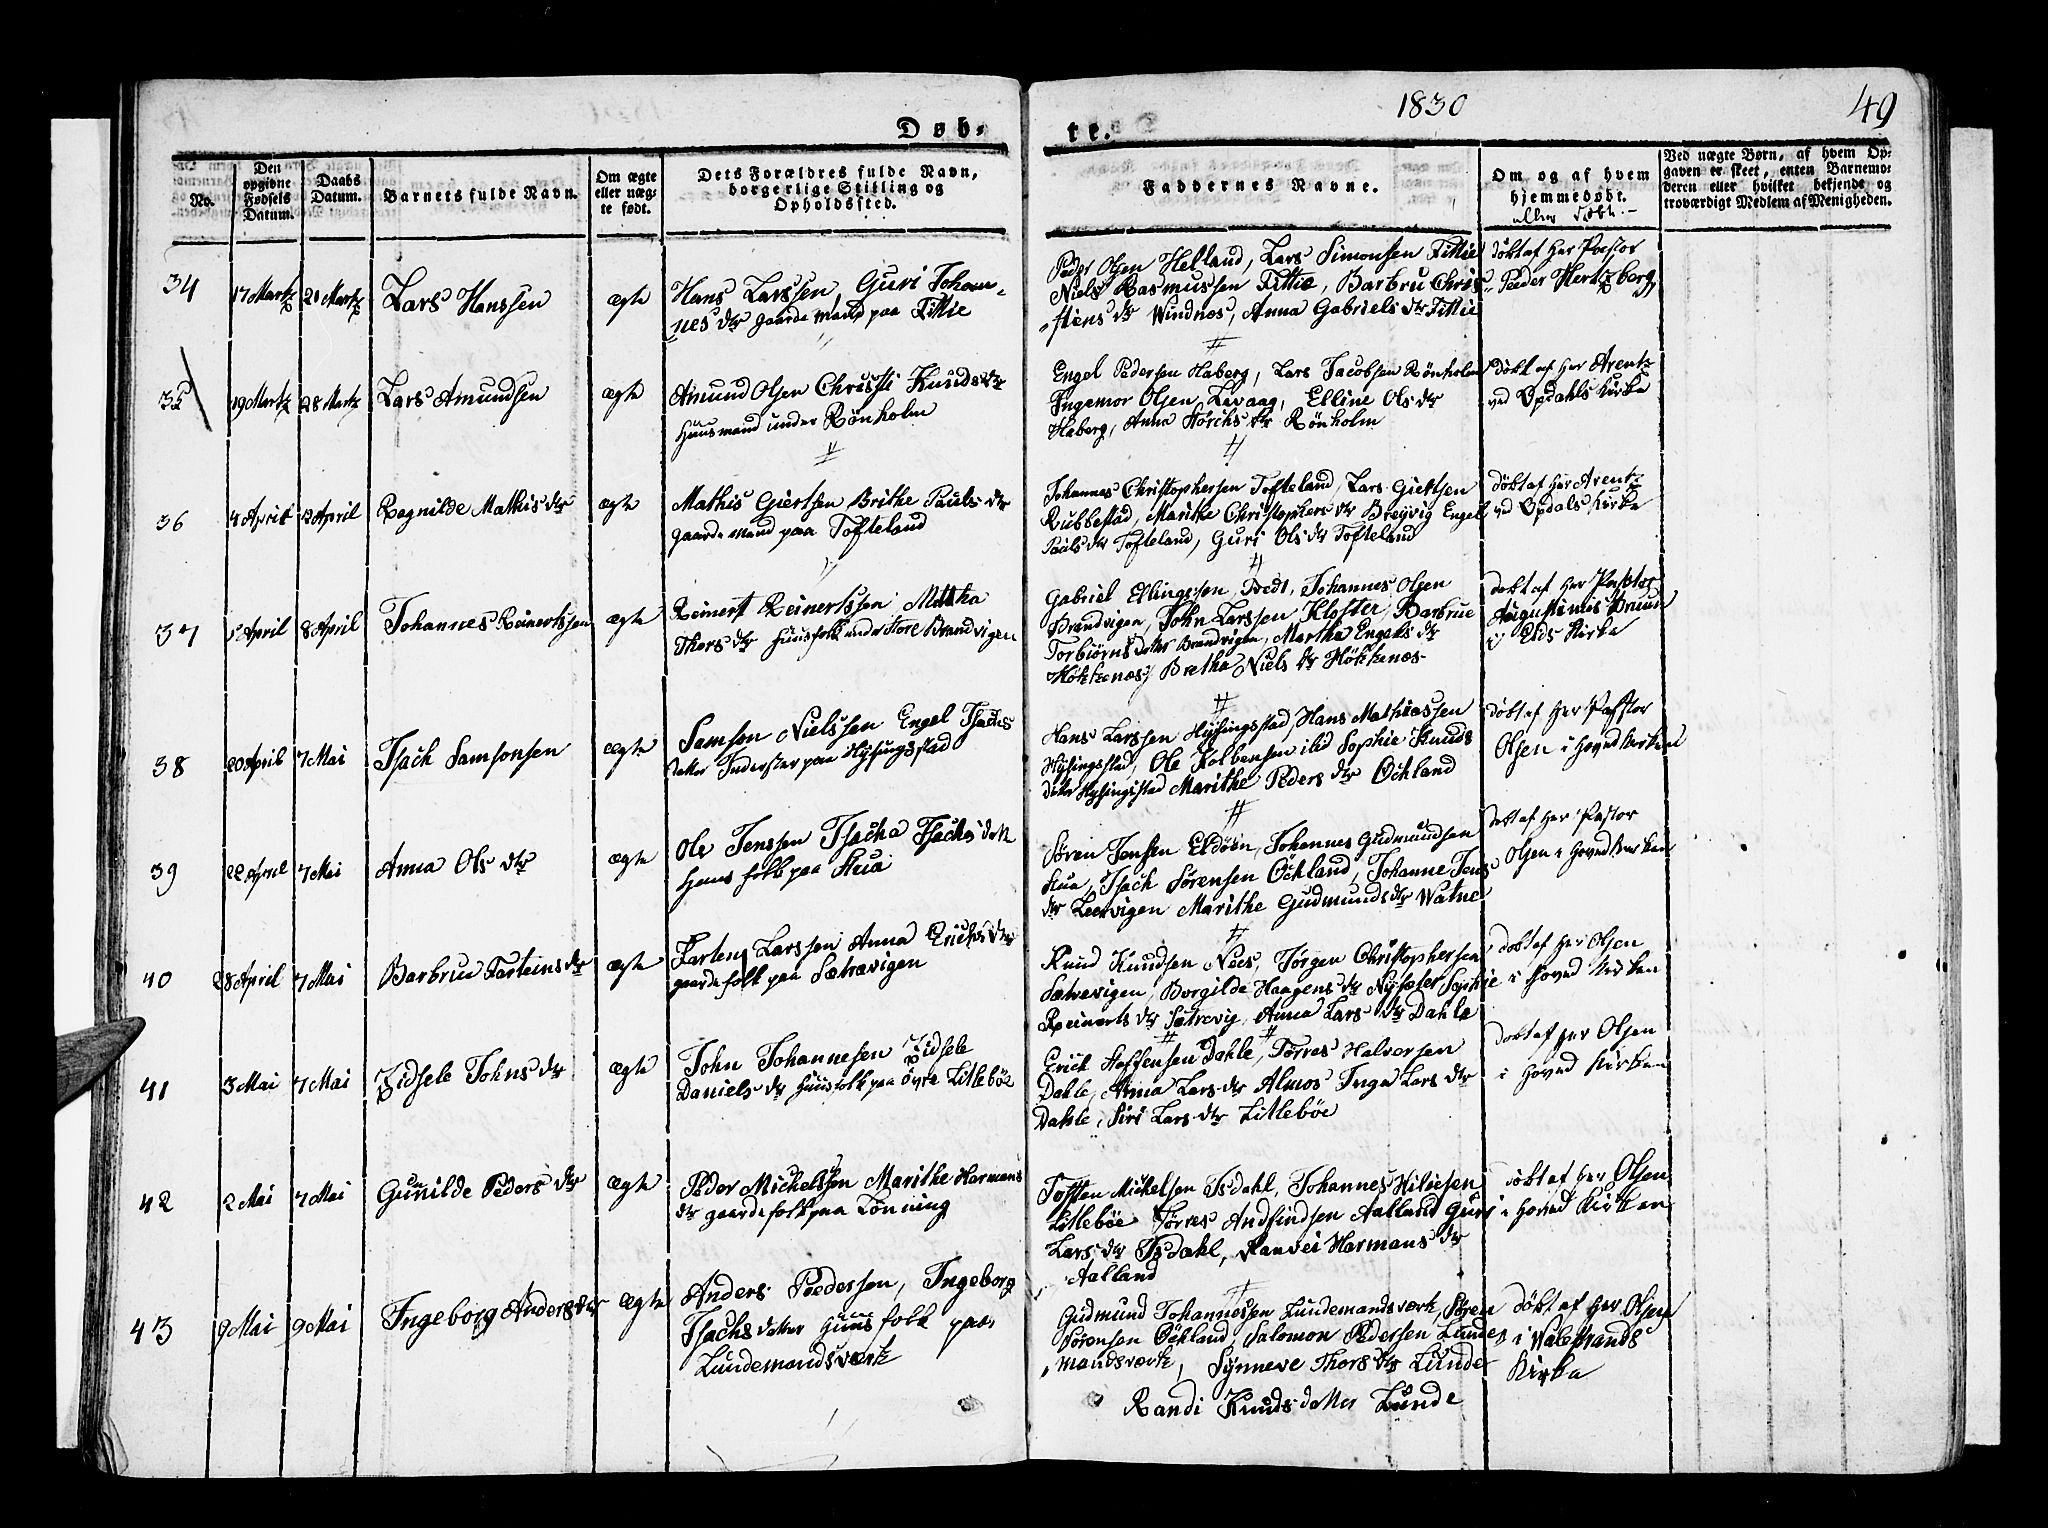 1830
49
Døb-
te.
No.
Den opgivne Fødsels Datum.
Daabs Datum.
Barnets fulde Navn.
Om ægte eller uægte født.
Dets Forældres fulde Navn, borgerlige Stilling og Opholdssted.
Faddernes Navne.
Om og af hvem hjemmedøbt.
eller døbt.
Ved uægte Børn, af hvem Opgaven er skeet, enten Barnemoderen eller hvilket bekjendt og troværdigt Medlem af Menigheden.
34 17 Martz 21 Martz Lars Hanssen ægte
Hans Larssen, Guri Johan-
nes dtr gaardemand paa Fittie
Peder Olsen Helland, Lars Simonsen Fittie
Niels Rasmussen Fittie, Barbru Chris-
stens dtr Windnos, Anna Gabriels dtr Fittie
döbt af Her Pastor
Peder Hertzberg
35 19 Martz 28 Martz Lars Amundsen ægte
Amund Olsen Christi Knuds dtr
Huusmand under Rönholm
Engel Pedersen Haberg, Lars Jacobsen Rönholm
Ingemor Olsen, Levaag, Elline Ols dtr
Haberg, Anna dtr Rönholm
döbt af Her Arentz
ved Opdahls Kirke
36 4 April April Ragnilde Mathis dtr ægte
Mathis Giertsen Brithe Pauls dtr
gaardemand paa Tofteland
Johannes Christophersen Tofteland, Lars Giertsen
Rubbestad, Marithe Christophers dtr Breyvig Engel
Pauls dtr Tofteland, Guri Ols dtr Tofteland
döbt af Her Arentz
ved Opdals Kirke
37 April 8 April Johannes Reinertssen ægte
Reinert Reinertssen
Thors dtr Huusfolk under Store Brandvigen
Gabriel Ellingssen, Tvedt, Johannes Olsen
Brandvigen, John Larssen, Kloster, Barbrue
Torbiørns datter Brandvigen, Martha Engels dtr
Hökkenæs, Bretha Niels dtr Hökkenæs
döbt af Her Pastor
Augustinus Bruun
i Eids Kirke
38 20 April 7 Mai Isach Samsonsen ægte
Samson Nielssen Engel Isachs
datter Inderster paa Hysingsstad
Hans Larssen Hysingsstad, Hans Mathiassen
Hysingsstad, Ole Kolbensen ibid Sophie Knuds
datter Hysingsstad Marithe Peders dtr Öckland
döbt af Her Pastor
Olsen i Hoved Kirken
39 22 April 7 Mai Anna Ols dtr ægte
Ole Jenssen Isacha Isachs datt
Huus folk paa Hua
Sören Jensen Eldöen, Johannes Gudmundsen
Hua, Isach Sörensen Öckland, Johanne Jens
dtr Leervigen Marithe Gudmunds dtr Watne
döbt af Her Pastor
Olsen i Hoved Kirken
40 28 April 7 Mai Barbrue Farteins dtr ægte
Farten Larssen Anna Erichs dtr
gaardefolk paa Sætrevigen
Knud Knudsen Nees, Jørgen Christophersen
Sætrevigen, Borgilde Haagens dtr Nysæter Sophie
Reinerts dtr Sætrevig, Anna Lars dtr Dahle
döbt af Her Olsen
i Hoved Kirken
41 3 Mai 7 Mai Zidsele Johns dtr ægte
John Johannesen Zidsele
Daniels dtr Huusfolk paa Öyre Litleböe
Erick Steffensen Dahle, Törres Halversen
Dahle, Anna Lars dtr Almos Inga Lars dtr
Dahle, Siri Lars dtr Litleböe
döbt af Her Olsen
i Hoved Kirken
42 2 Mai 7 Mai Gunilde Peders dtr ægte
Peder Mickelsen Marithe Harmans
dtr gaardefolk paa Lönning
Tosten Mickelsen Isdahl, Johannes
Litleböe Törres Andfindsen Aalland Guri
Lars dtr Isdahl, Ranvei Harmans dtr
Aalland
döbt af Her Olsen
i Hoved Kirken
43 9 Mai 9 Mai Ingeborg Anders dtr ægte
Anders Pedersen, Ingeborg
Isachs datter Huus folk paa
Lundemandsværk
Gudmund Johannessen Lundemandsværk, Sören
Sörensen Öckland, Salomon Pedersen Lunde-
mandsværk, Synneve Thors dtr Lunde
Randi Knuds datter Lunde
döbt af Her Olsen
i Walestrands
Kirke